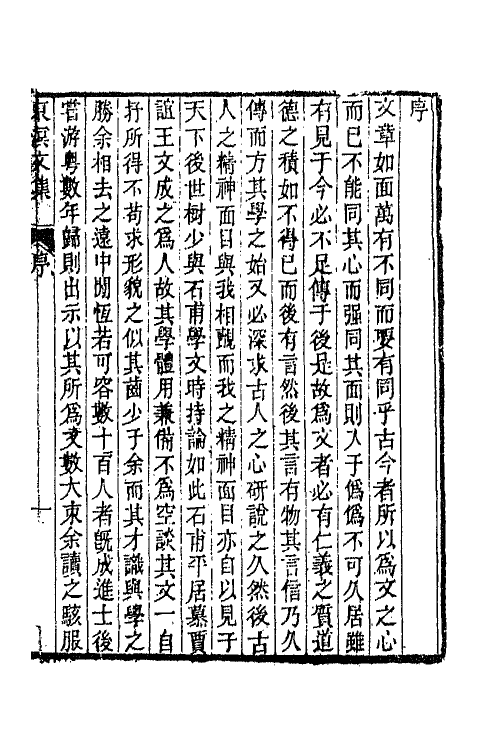 序
文章如面萬有不同而要有同乎古今者所以為文之心
而已不能同其心而强同其面則入于偽偽不可久居雖
有見于今必不足傳于後是故為文者必有仁義之質道
德之積如不得已而後有言然後其言有物其言信乃久
傳而方其學之始又必深求古人之心研說之久然後古
人之精神面目與我相覿而我之精神面目亦自以見于
天下後世樹少與石甫學文時持論如此石甫平居慕賈
誼王文成之為人故其學體用兼備不為空談其文一自
抒所得不苟求形貌之似其齒少于余而其才識與學之
勝余相去之遠中閒恆若可容數十百人者旣成進士後
嘗游粤數年歸則出示以其所為文數大束余讀之駭服
東溟文集
序
一